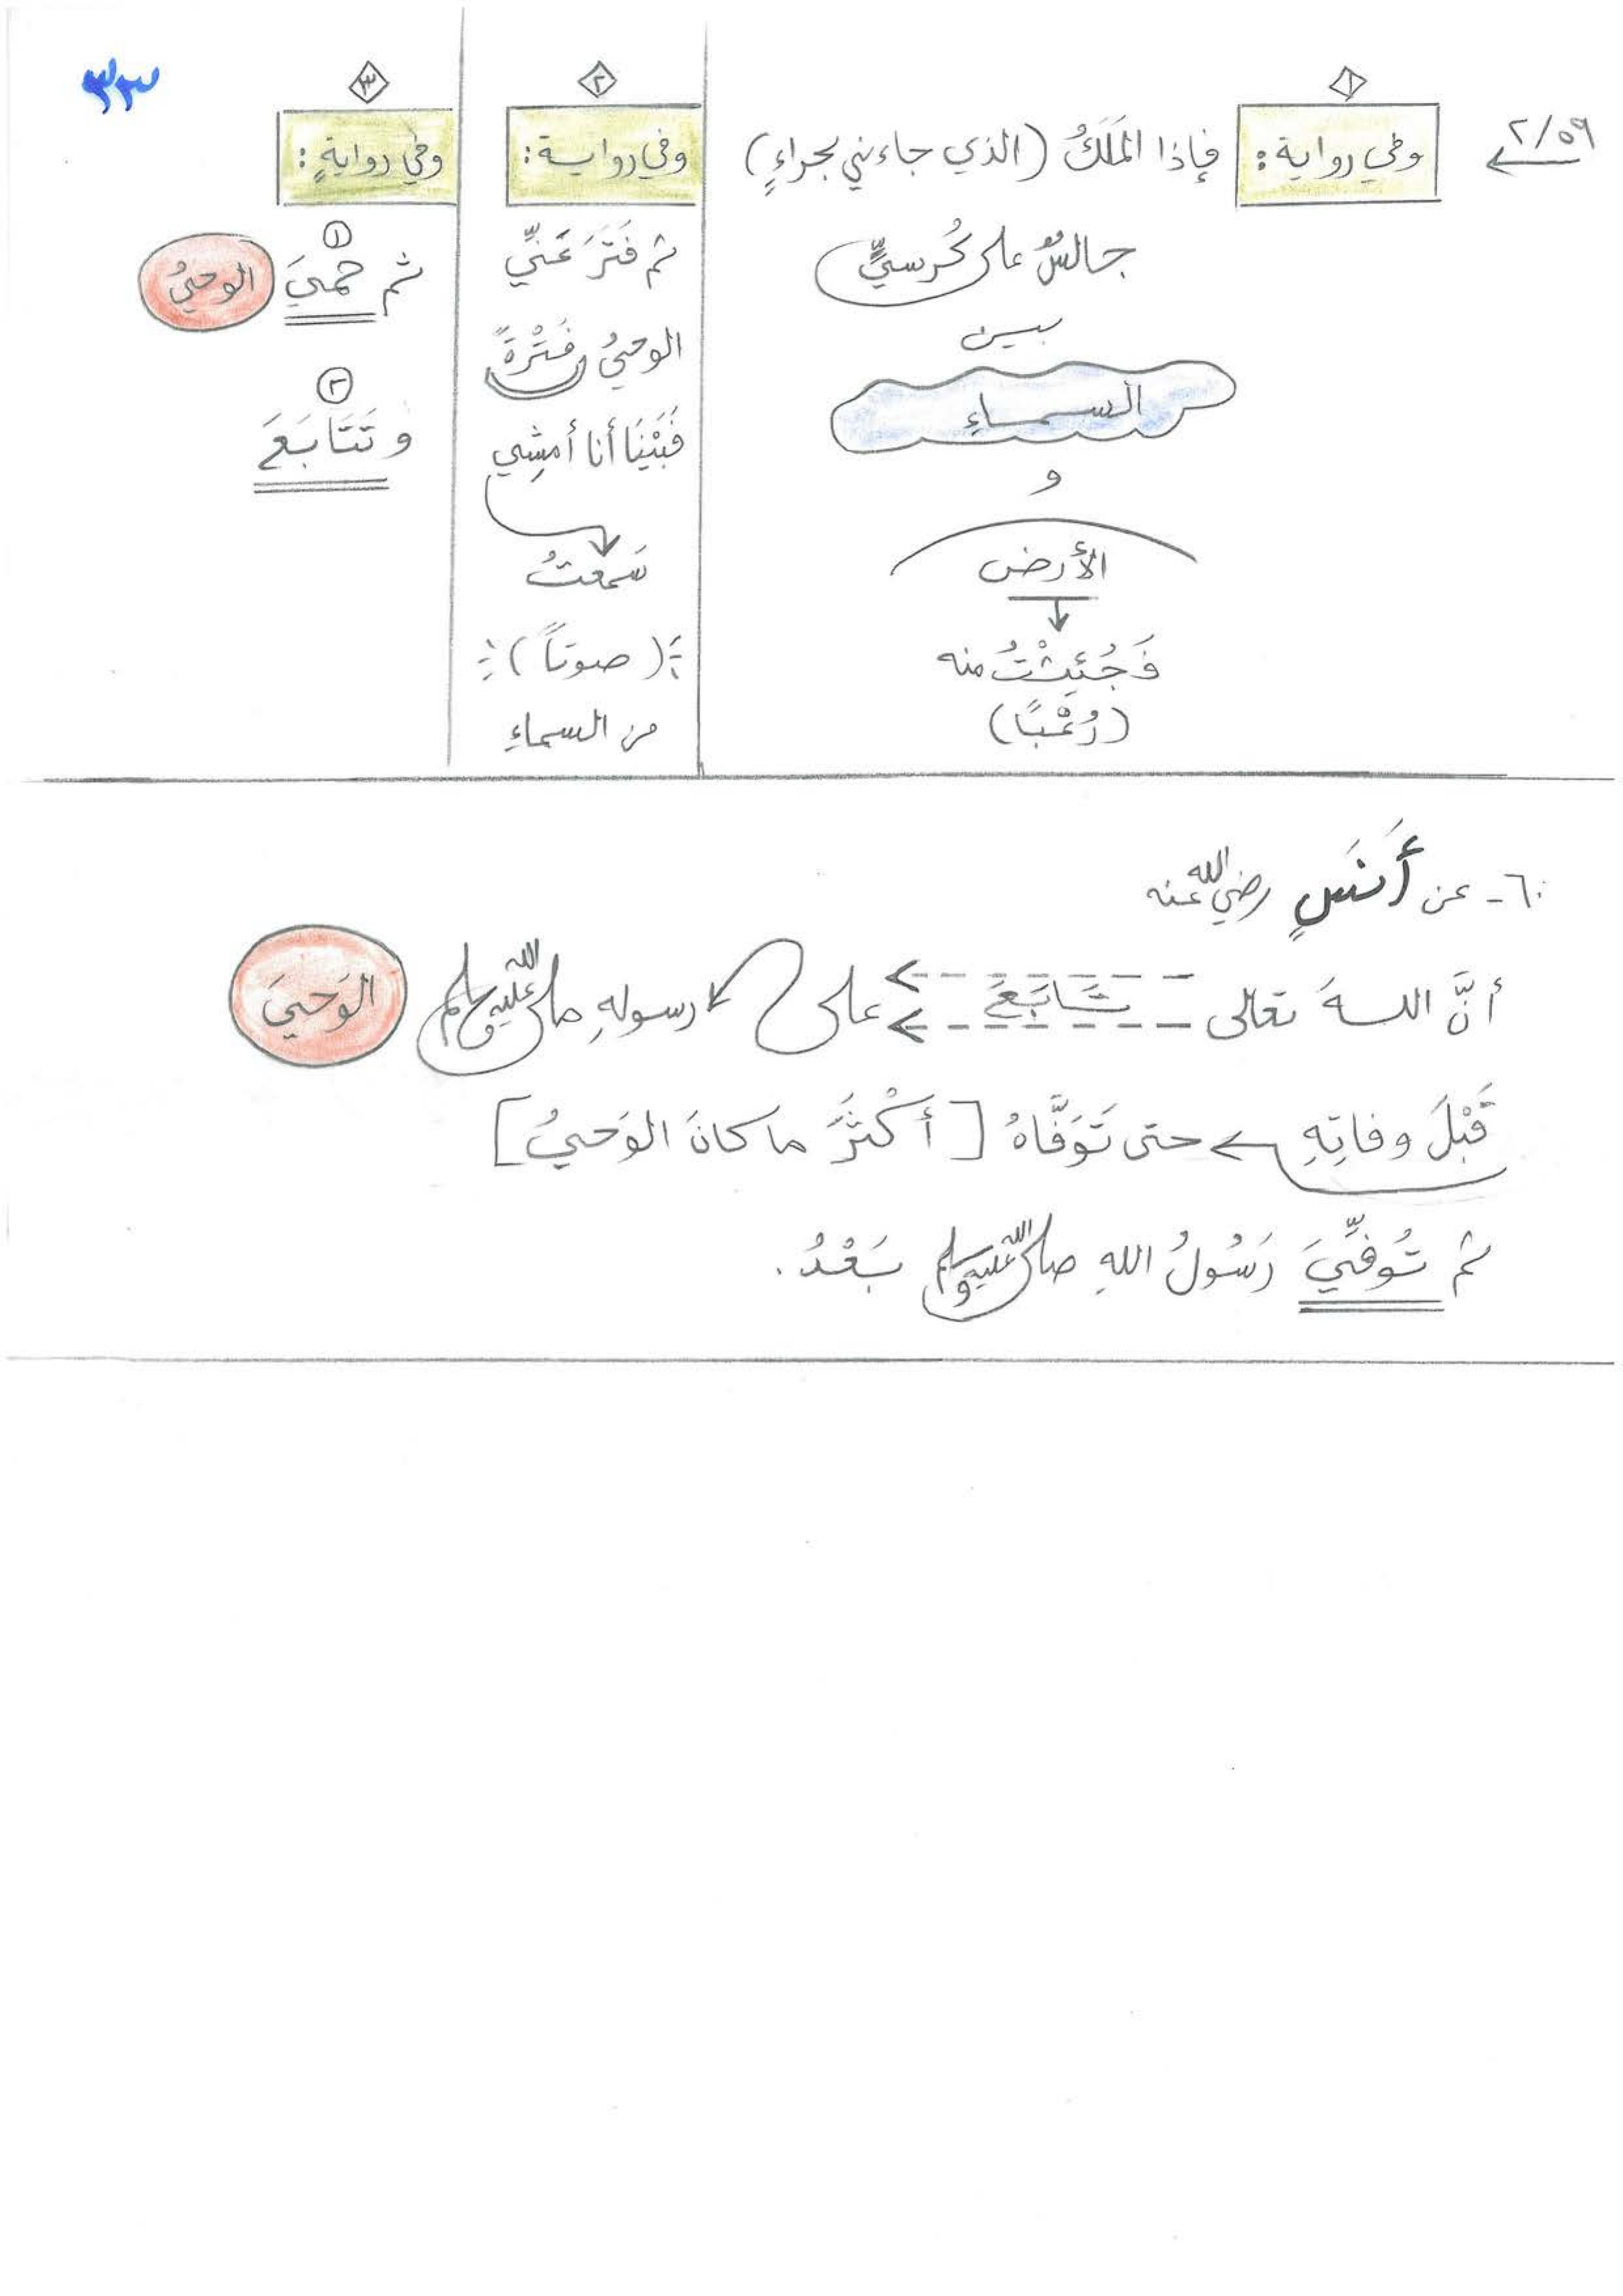 ٣٣
٢/٥٩
١
وفي رواية: فإذا المَلَكُ (الذي جاءني بحراءٍ)
جالسٌ على كُرسيٍّ
بين
السماءِ
و
الأرض
فَجُئِثْتُ منه
(رُعْبًا)
٢
وفي رواية:
ثم فَتَرَ عَنِّي
الوحيُ فَتْرَةً
فَبَيْنَا أنا أمشِي
سَمعتُ
(صوتاً)
من السماءِ
٣
وفي روايةٍ:
١
ثم حَمِيَ الوحيُ
٢
وتَتَابَعَ
٦٠- عن أَنَسٍ رضي الله عنه
أنَّ اللهَ تعالى تَابَعَ على رسولهِ صلى الله عليه وسلم الوَحيَ
قَبْلَ وفاتِهِ حتى تَوَفَّاهُ [أَكْثَرَ ما كانَ الوَحيُ]
ثم تُوفِّيَ رَسُولُ اللهِ صلى الله عليه وسلم بَعْدُ.